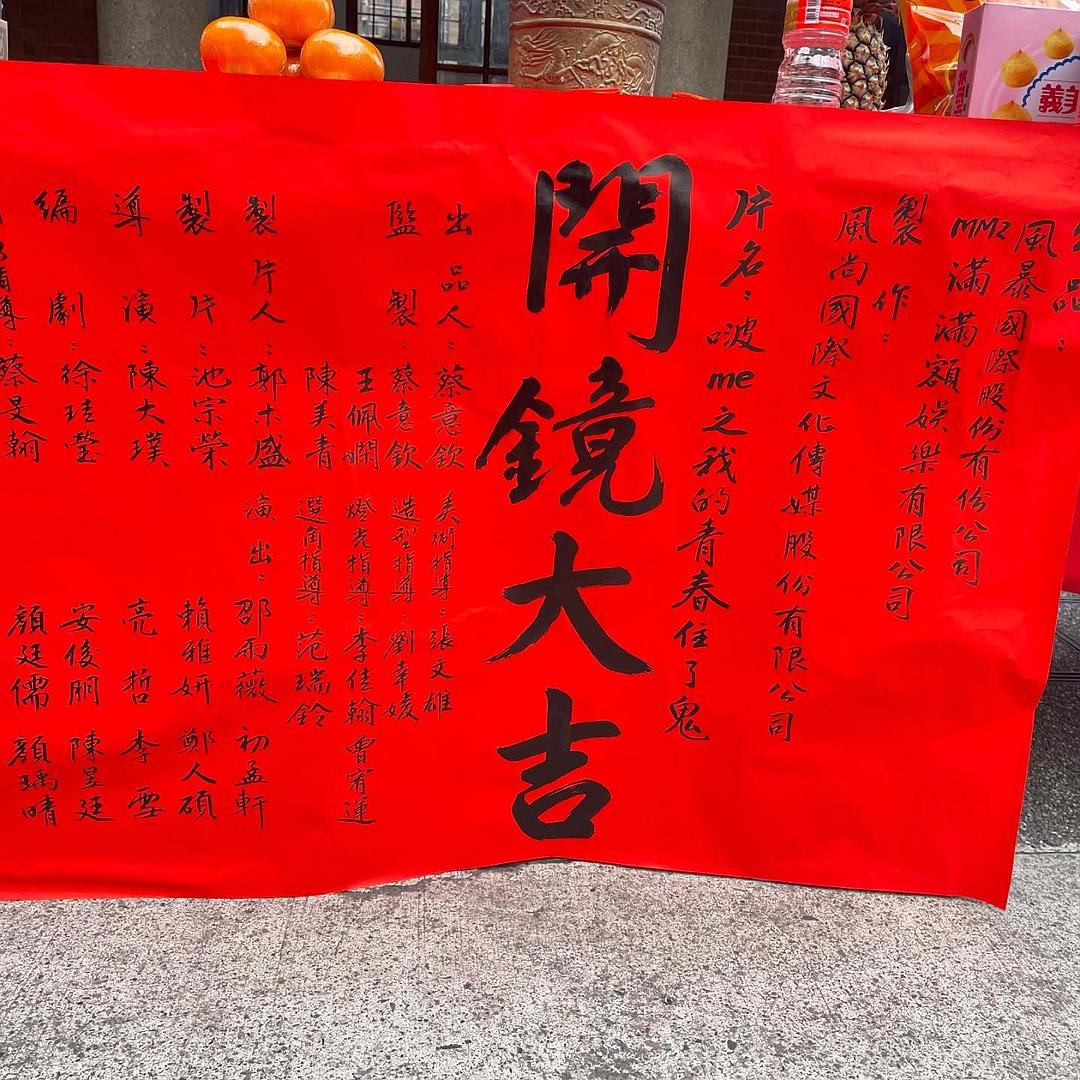 出品：
風暴國際股份有份公司
MM2滿滿額娛樂有限公司
製作：
風尚國際文化傳媒股份有限公司
片名：啵me之我的青春住了鬼
開鏡大吉
出品人：蔡意欽
監製：蔡意欽
王佩嫻
陳美青
製片人：郭木盛
製片：池宗榮
導演：陳大璞
編劇：徐珪瑩
指導：蔡旻翰
美術指導：張文雄
造型指導：劉幸媛
燈光指導：李佳翰 曾宥運
選角指導：范瑞鈴
演出：邵雨薇 初孟軒
賴雅妍 鄭人碩
亮哲 李雪
安俊朋 陳昱廷
顏廷儒 顏瑀晴
義美